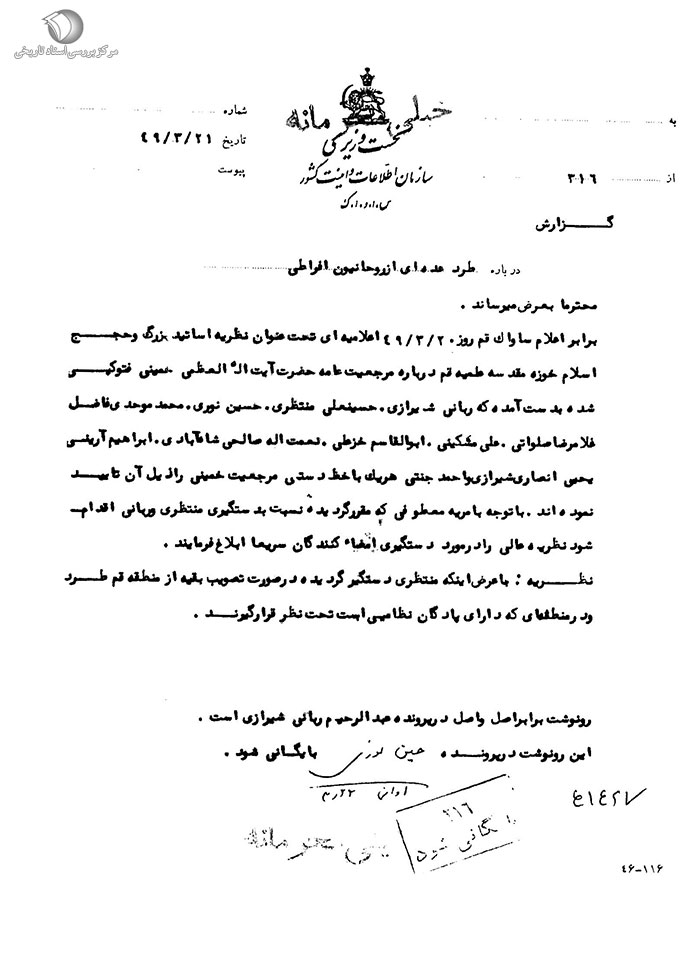 مرکز بررسی اسناد تاریخی
خیلی محرمانه
نخست وزیری
سازمان اطلاعات و امنیت کشور
س.ا.و.ا.ک
به
از ۳۱۶
شماره
تاریخ ۴۹/۳/۲۱
پیوست
گزارش
درباره طرد عده ای از روحانیون افراطی
محترما بعرض میرساند .
برابر اعلام ساواک قم روز ۴۹/۳/۲۰ اعلامیه ای تحت عنوان نظریه اساتید بزرگ و حجج
اسلام حوزه مقدسه علمیه قم درباره مرجعیت عامه حضرت آیت اله العظمی خمینی فتوکپی
شده بدست آمده که ربانی شیرازی . حسینعلی منتظری . حسین نوری . محمد موحدی فاضل
غلامرضا صلواتی . علی مشکینی . ابوالقاسم خزعلی . نعمت اله صالحی
یحیی انصاری شیرازی واحمد جنتی هریک با خط دستی مرجعیت خمینی را ذیل آن تایید
نموده اند . با توجه بامریه معطوفی که مقرر گردیده نسبت بدستگیری منتظری وربانی اقدام
شود نظریه عالی را در مورد دستگیری امضاء کنندگان سریعا ابلاغ فرمایند .
نظریه : با عرض اینکه منتظری دستگیر گردیده در صورت تصویب بقیه از منطقه قم طرد
ودر منطقه‌ای که دارای پادگان نظامی است تحت نظر قرار گیرند .
رونوشت برابر اصل واصل در پرونده عبدالرحیم ربانی شیرازی است .
این رونوشت در پرونده حسین نوری بایگانی شود .
۳۱۶
بایگانی شود
خیلی محرمانه
۴۶-۱۱۶